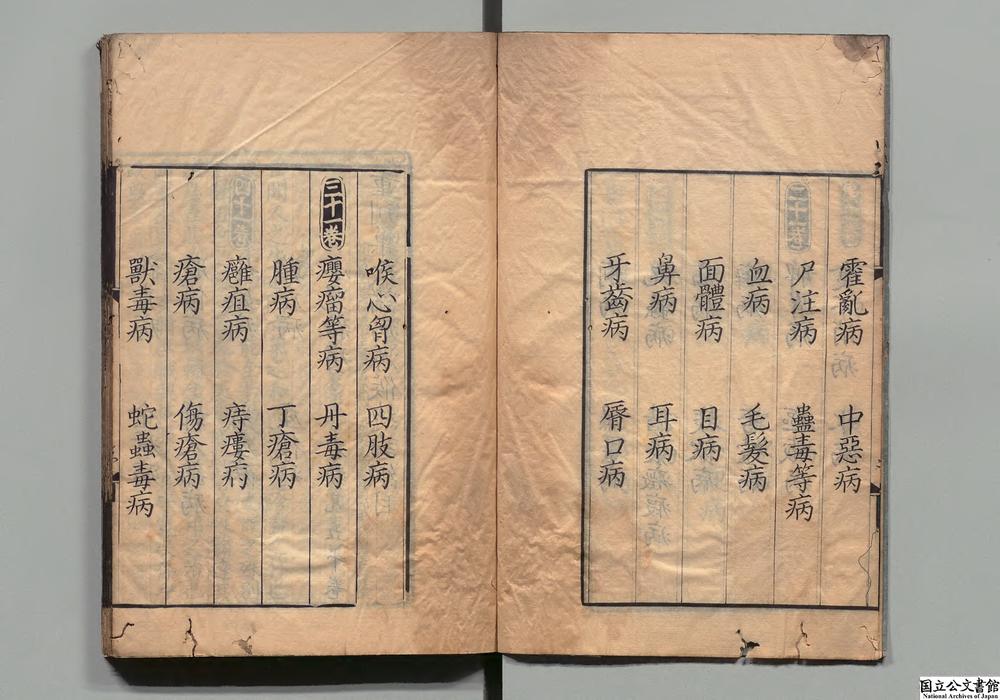 霍亂病　中惡病
尸注病　蠱毒等病
血病　毛髮病
面體病　目病
鼻病　耳病
牙齒病　脣口病
喉心胷病　四肢病
三十一卷　癭瘤等病　丹毒病
腫病　丁瘡病
癰疽病　痔瘻病
瘡病　傷瘡病
獸毒病　蛇蟲毒病
国立公文書館
National Archives of Japan